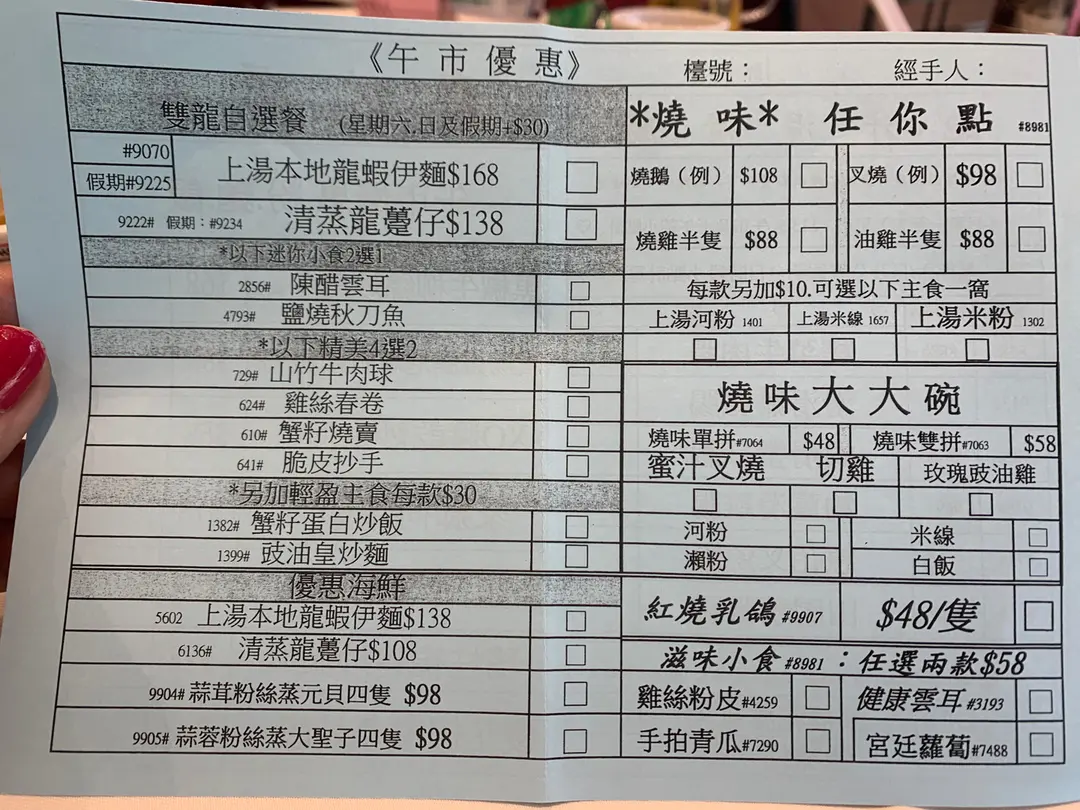 《午市優惠》 檯號： 經手人：
雙龍自選餐 (星期六.日及假期+$30)
#9070
假期#9225
上湯本地龍蝦伊麵$168
9222# 假期：#9234 清蒸龍躉仔$138
*以下迷你小食2選1
2856# 陳醋雲耳
4793# 鹽燒秋刀魚
*以下精美4選2
729# 山竹牛肉球
624# 雞絲春卷
610# 蟹籽燒賣
641# 脆皮抄手
*另加輕盈主食每款$30
1382# 蟹籽蛋白炒飯
1399# 豉油皇炒麵
優惠海鮮
5602 上湯本地龍蝦伊麵$138
6136# 清蒸龍躉仔$108
9904# 蒜茸粉絲蒸元貝四隻 $98
9905# 蒜蓉粉絲蒸大聖子四隻 $98
*燒味* 任你點 #8981
燒鵝（例） $108 叉燒（例） $98
燒雞半隻 $88 油雞半隻 $88
每款另加$10.可選以下主食一窩
上湯河粉 1401 上湯米線 1657 上湯米粉 1302
燒味大大碗
燒味單拼#7064 $48 燒味雙拼#7063 $58
蜜汁叉燒 切雞 玫瑰豉油雞
河粉 米線
瀨粉 白飯
紅燒乳鴿 #9907 $48/隻
滋味小食 #8981：任選兩款$58
雞絲粉皮#4259 健康雲耳 #3193
手拍青瓜#7290 宮廷蘿蔔#7488